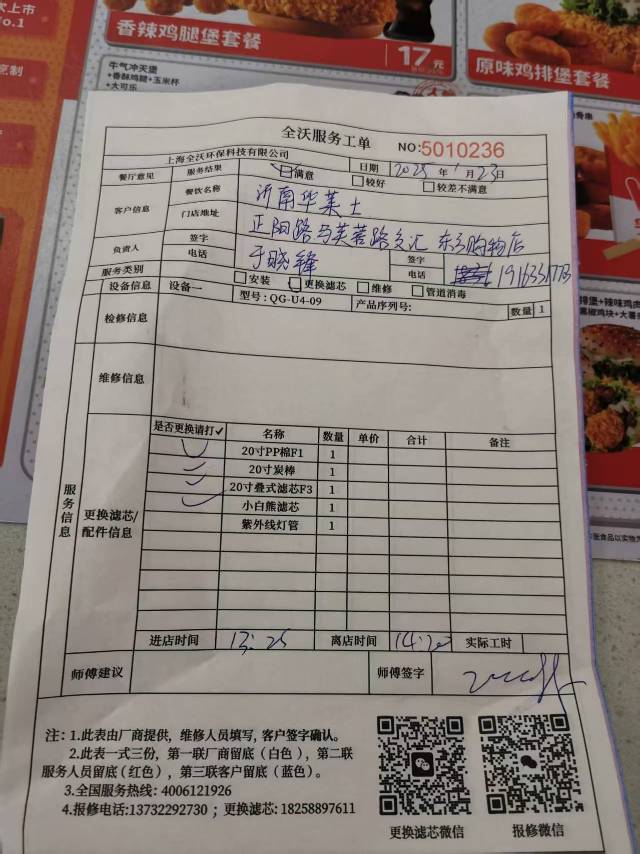 香辣鸡腿堡套餐
17元
原味鸡排堡套餐
牛气冲天堡
+香酥鸡腿+玉米杯
+大可乐
全沃服务工单
NO:5010236
上海全沃环保科技有限公司
日期 2025年1月23日
餐厅意见 服务结果 满意 较好 较差不满意
客户信息 餐饮名称 济南华莱士
门店地址 正阳路与芙蓉路交汇 东方购物店
负责人 签字 电话 于晓锋 签字 电话
服务类别 安装 更换滤芯 维修 管道消毒
设备信息 设备一 型号:QG-U4-09 产品序列号: 数量 1
检修信息
维修信息
服务信息
更换滤芯/配件信息
是否更换请打✓ 名称 数量 单价 合计 备注
20寸PP棉F1 1
20寸炭棒 1
20寸叠式滤芯F3 1
小白熊滤芯 1
紫外线灯管 1
进店时间 13:25 离店时间 14:20 实际工时
师傅建议 师傅签字
注:1.此表由厂商提供,维修人员填写,客户签字确认。
2.此表一式三份,第一联厂商留底(白色),第二联
服务人员留底(红色),第三联客户留底(蓝色)。
3.全国服务热线:4006121926
4.报修电话:13732292730;更换滤芯:18258897611
更换滤芯微信
报修微信